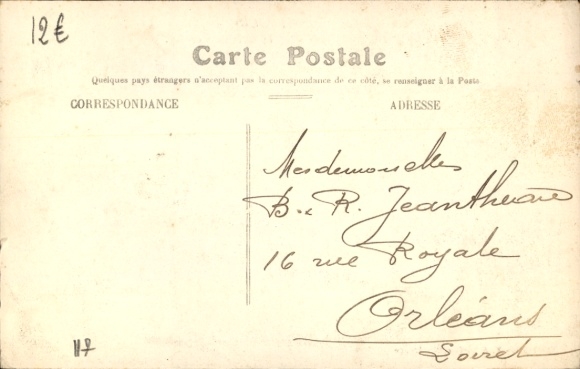 12€
Carte Postale
Quelques pays étrangers n'acceptant pas la correspondance de ce côté, se renseigner à la Poste
CORRESPONDANCE
ADRESSE
Mesdemoiselles
B. R. Jeantheau
16 rue Royale
Orléans
Loiret